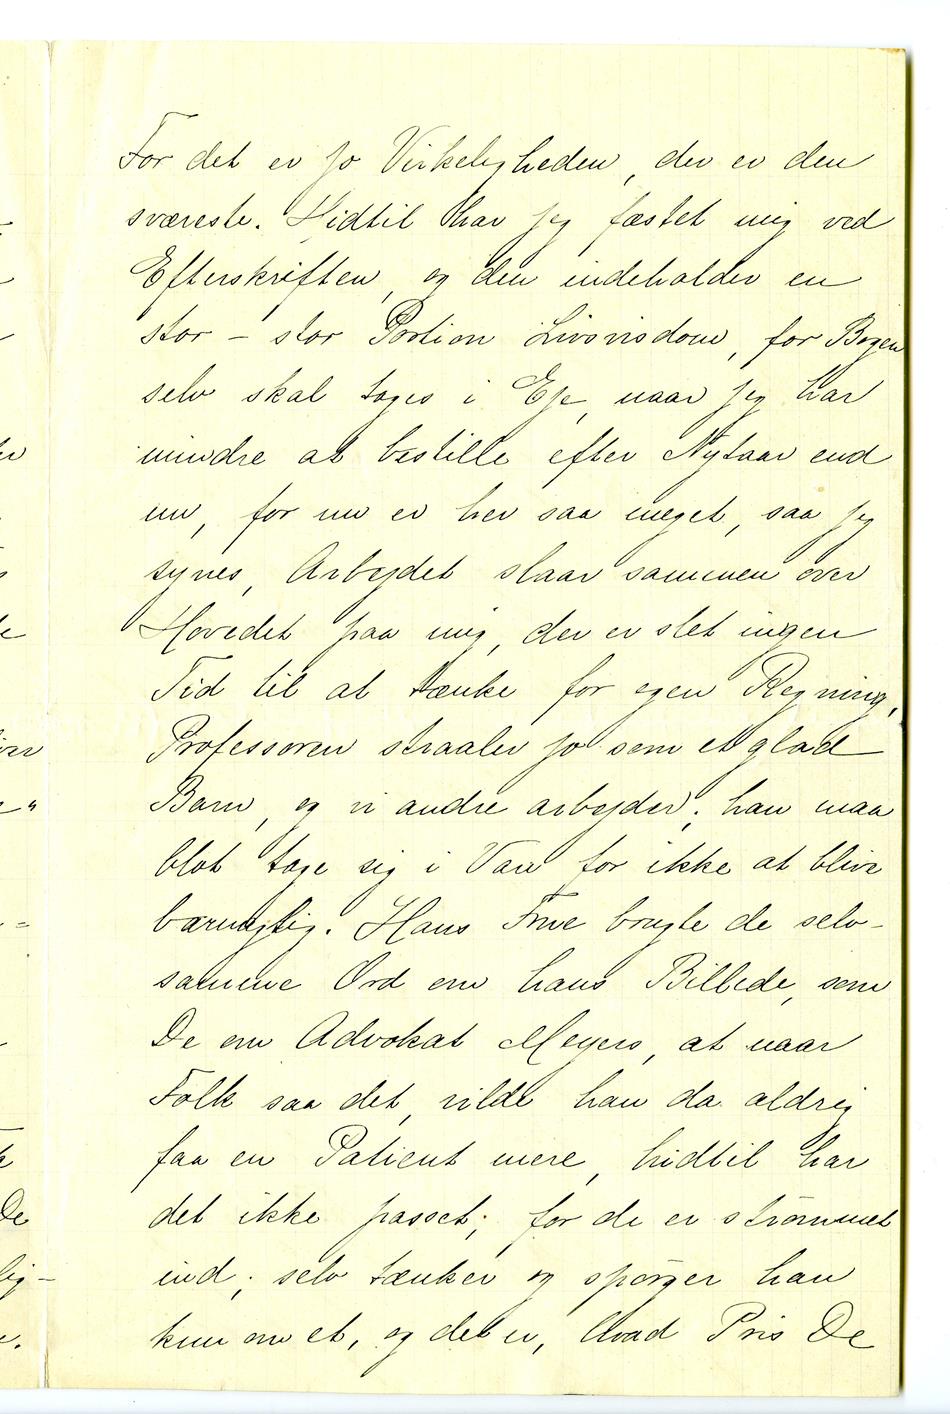 For det er jo Virkeligheden, der er den
sværeste. Hidtil har jeg fæstet mig ved
Efterskriften, og den indeholder en
stor – stor Portion Livsvisdom, for Bogen
selv skal tages i Eje, naar jeg har
mindre at bestille efter Nytaar end
nu, for nu er her saa meget, saa jeg
synes, Arbejdet slaar sammen over
Hovedet paa mig, der er slet ingen
Tid til at tænke for egen Regning,
Professoren straaler jo som et glad
Barn, og vi andre arbejder; han maa
blot tage sig i Vare for ikke at blive
barnagtig. Hans Frue brugte de selv-
samme Ord om hans Billede, som
De om Advokat Meyers, at naar
Folk saa det, vilde han da aldrig
faa en Patient mere, hidtil har
det ikke passet; for de er strømmet
ind; selv tænker og spørger han
kun om et, og det er, hvad Pris De